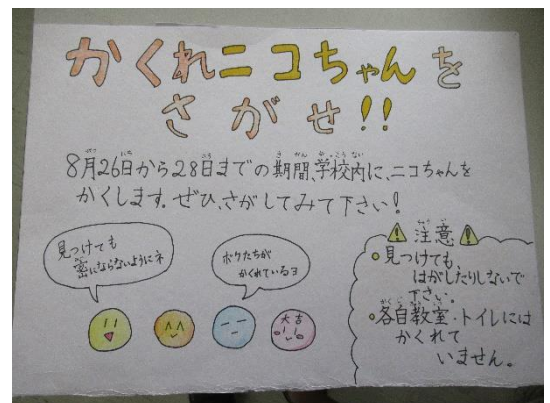 かくれニコちゃんを
さがせ!!
8月26日から28日までの期間、学校内に、ニコちゃんを
かくします。ぜひ、さがしてみて下さい!
見つけても
密にならないようにネ
ボクたちが
かくれているヨ
大吉
注意
見つけても、
はがしたりしないで
下さい。
各自教室・トイレには
かくれて
いません。